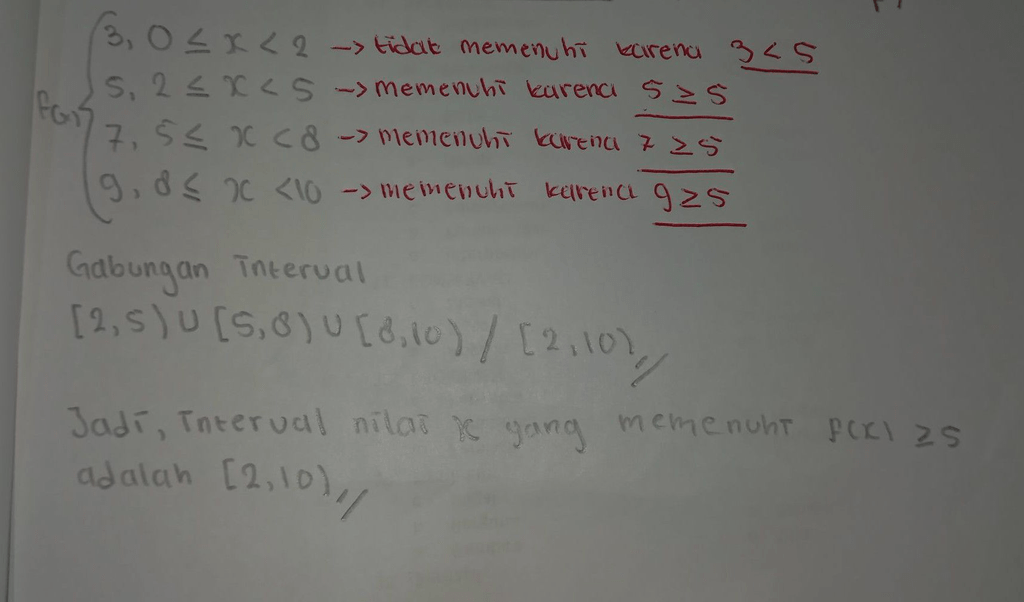 3, 0 ≤ x < 2 -> tidak memenuhi karena 3 < 5
5, 2 ≤ x < 5 -> memenuhi karena 5 ≥ 5
f(x)
7, 5 ≤ x < 8 -> memenuhi karena 7 ≥ 5
9, 8 ≤ x < 10 -> memenuhi karena 9 ≥ 5
Gabungan interval
[2,5) U [5,8) U [8,10) / [2,10)//
Jadi, interval nilai x yang memenuhi f(x) ≥ 5
adalah [2,10)//